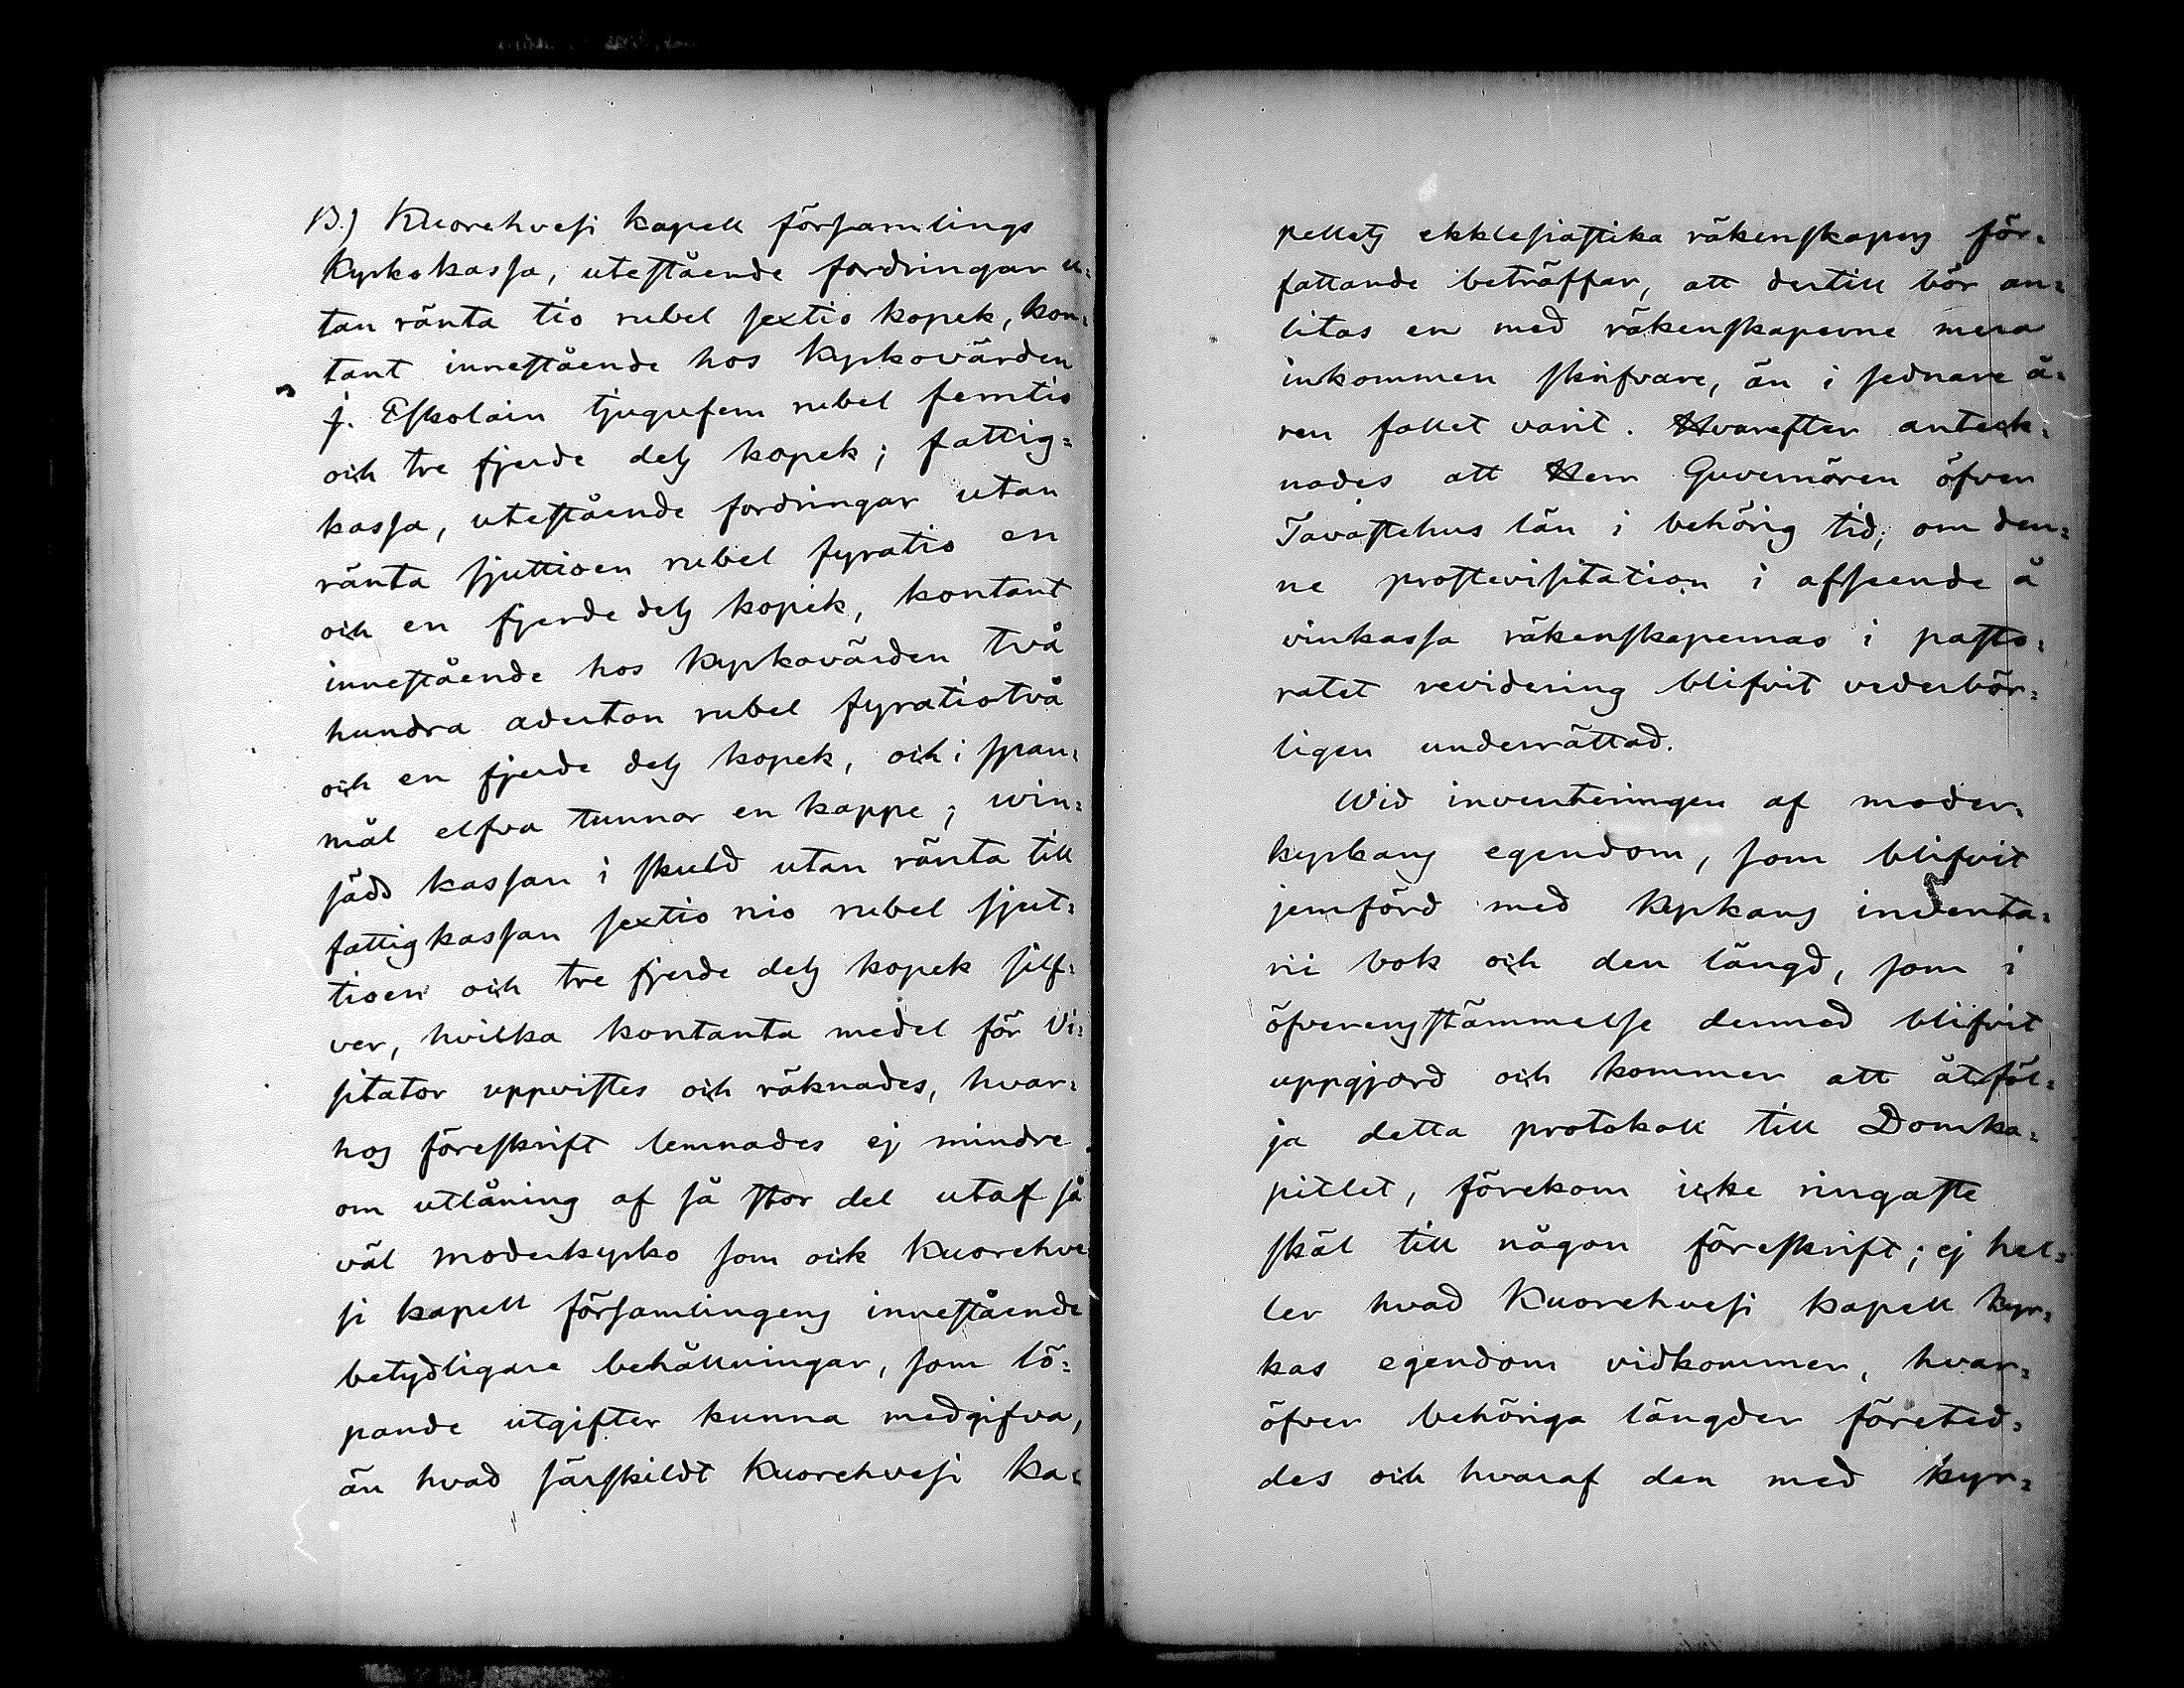 B.) Kuorehvesi kapell församlings
Kyrkokassa, utestående fordringar u=
tan ränta tio rubel sextio kopek, kon=
tant innestående hos Kyrkovärden
J. Eskolain tjugufem rubel femtio
och tre fjerde dels kopek; fattig=
kassa, utestående fordringar utan
ränta sjuttioen rubel fyratio en
och en fjerde dels kopek, kontant
innestående hos Kyrkovärden två
hundra aderton rubel fyratiotvå
och en fjerde dels kopek, och i span=
mål elfva tunnor en kappe; win=
sädd kassan i skuld utan ränta till
fattigkassan sextio nio rubel sjut=
tioen och tre fjerde dels kopek silf=
ver, hvilka kontanta medel för Vi=
sitator uppvistes och räknades, hvar=
hos föreskrift lemnades ej mindre
om utlåning af så stor del utaf så
väl moderkyrko som ock Kuorehve
si kapell församlingens innestående
betydligare behållningar, som lö=
pande utgifter kunna medgifva,
än hvad särskildt Kuorehvesi ka=
pellets ekklesiastika räkenskapers för=
fattande beträffar, att dertill bör an=
litas en med räkenskaperne mera
inkommen skrifvare, än i sednare å=
ren fallet varit. Hvarefter anteck=
nades att Herr Guvernören öfver
Tavastehus län i behörig tid, om den=
ne prostevisitation i afseende å
vinkassa räkenskapernas i pasto=
ratet revidering blifvit vederbör=
ligen underrättad.
Wid inventeringen af moder=
kyrkans egendom, som blifvit
jemförd med Kyrkans inventa=
rii bok och den längd, som i
öfverensstämmelse dermed blifvit
uppgjord och kommer att åtföl=
ja detta protokoll till Domka=
pitlet, förekom icke ringaste
skäl till någon föreskrift; ej hel=
ler hvad Kuorehvesi kapell kyr=
kas egendom vidkommer, hvar=
öfver behöriga längder företed=
des och hvaraf den med kyr=